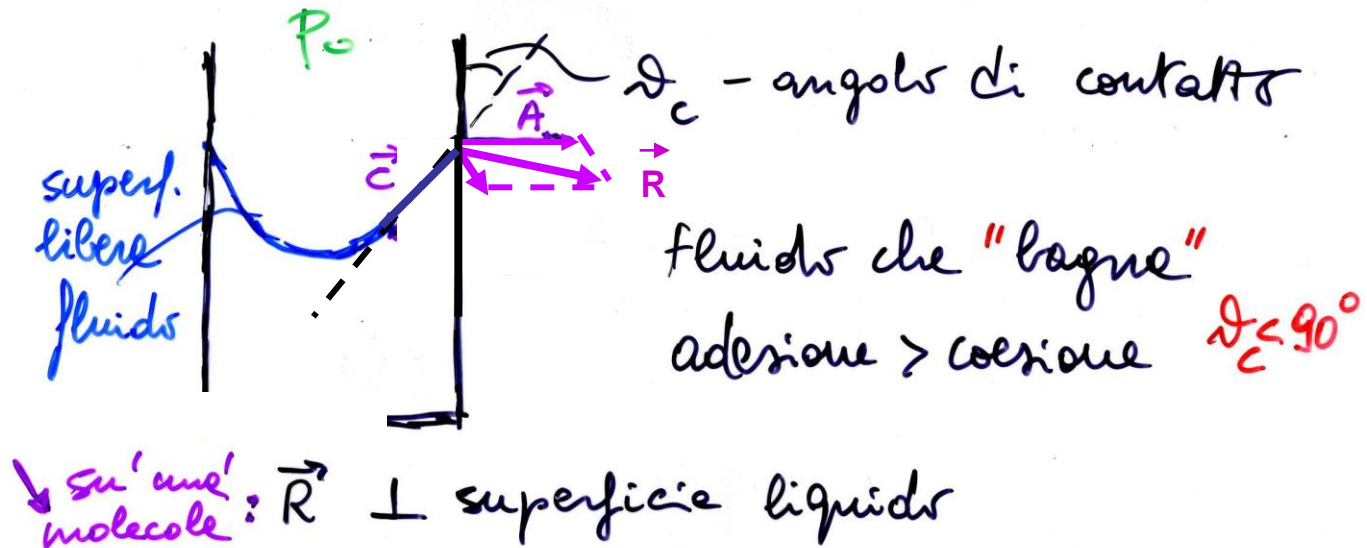 P₀
ϑ_c - angolo di contatto
A⃗
C⃗
R⃗
superf.
libera
fluido
fluido che "bagna"
adesione > coesione ϑ_c < 90°
su' una'
molecole : R⃗ ⊥ superficie liquido